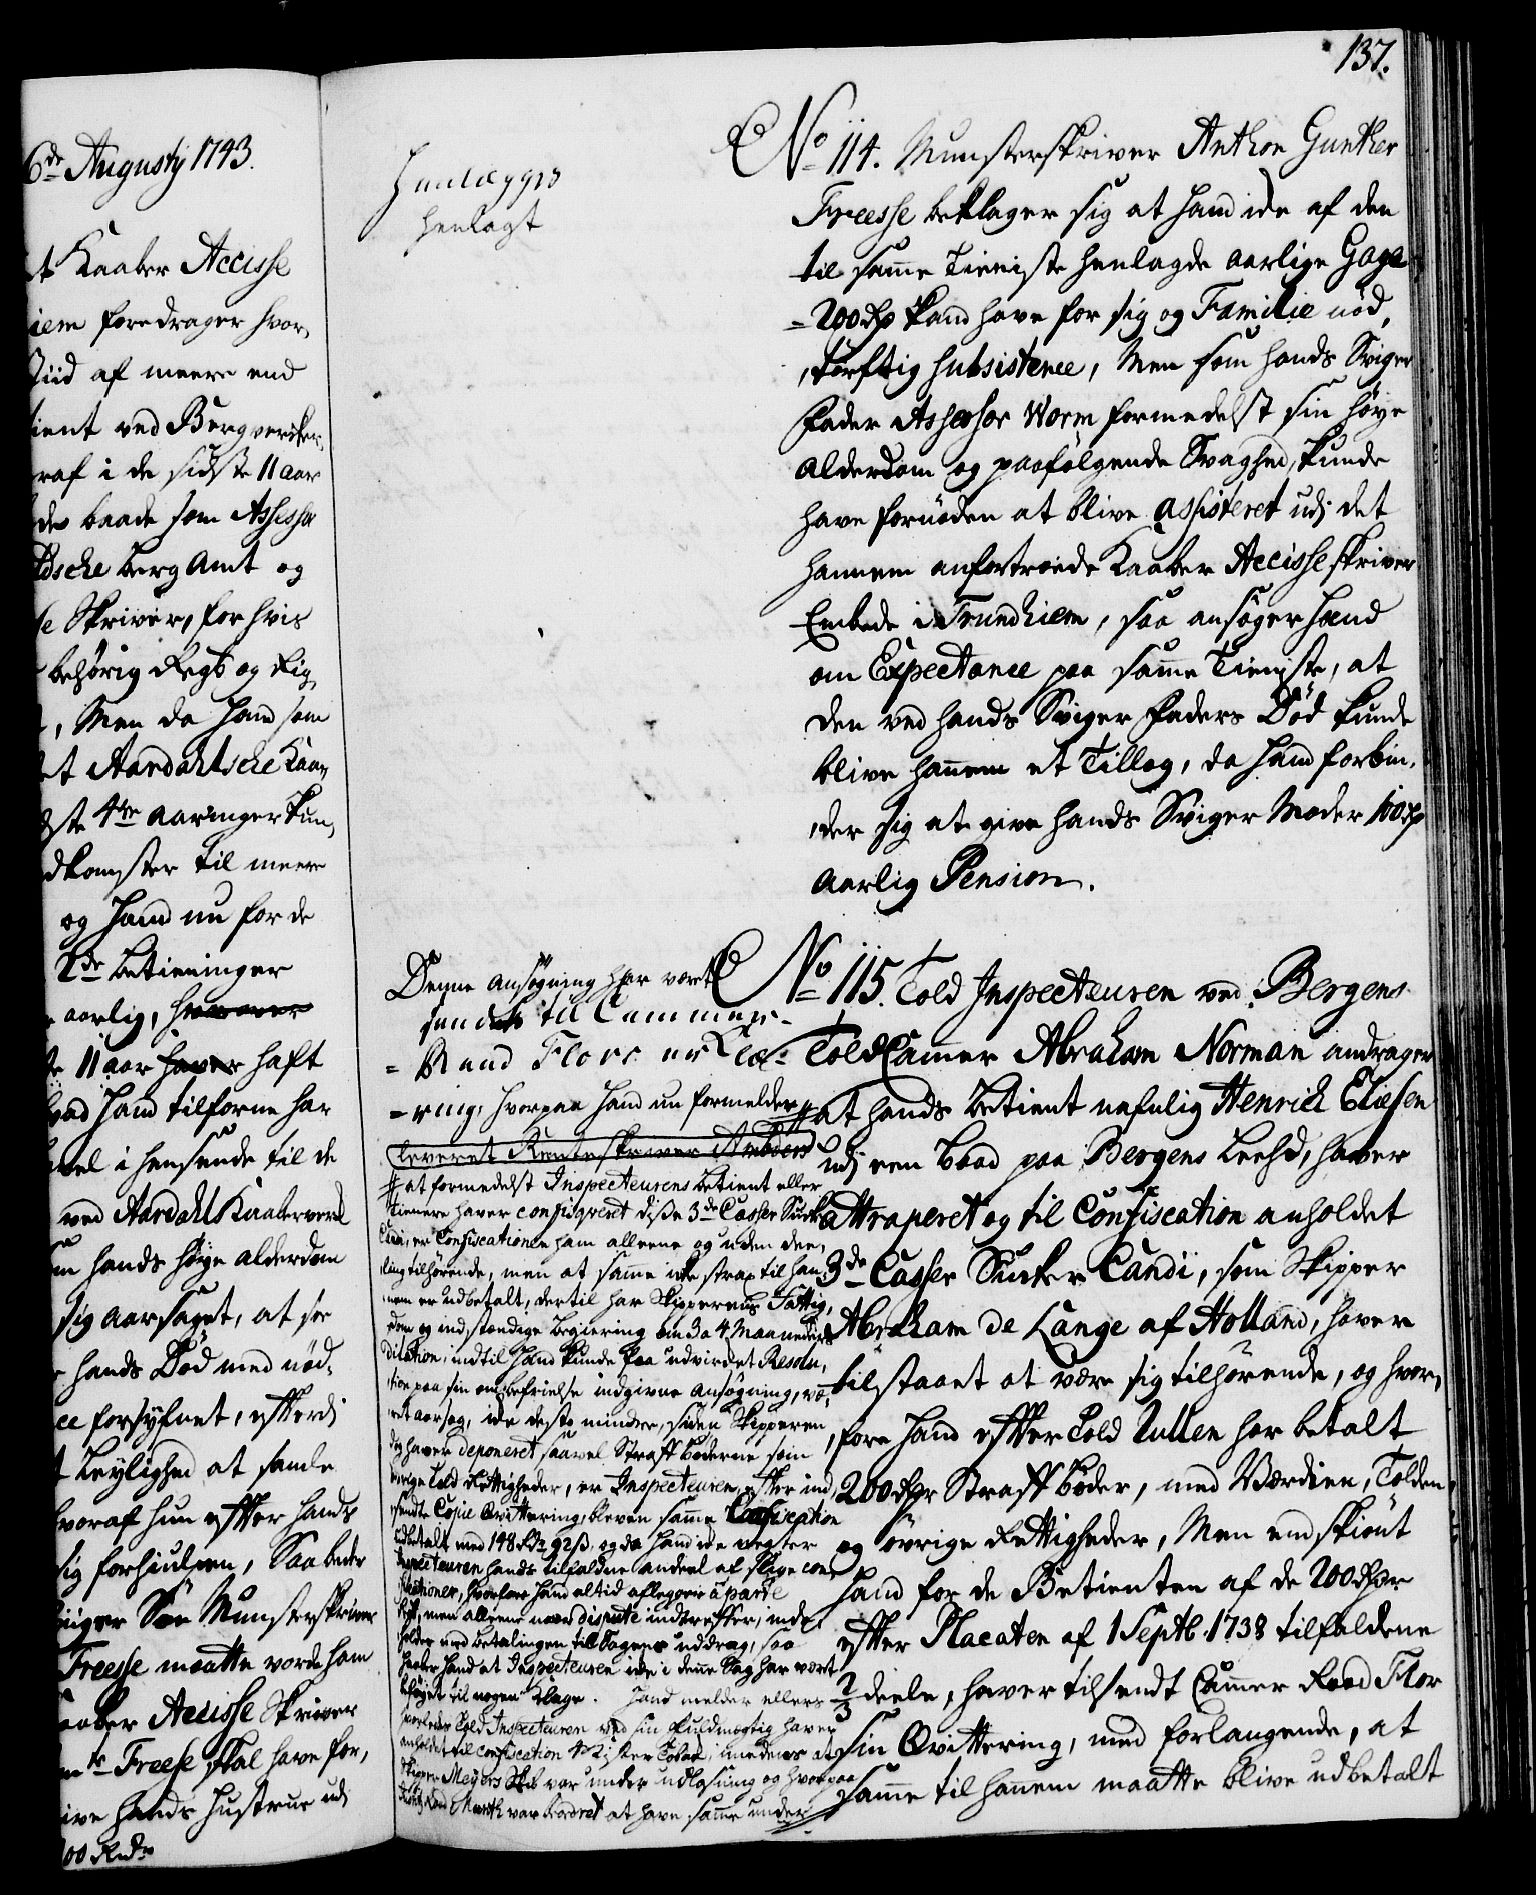 137.
6de Augustij 1743.
t Kaaber Accisse
iem foredrager hvor,
Tiid af meere end
tient ved Bergverker,
raf i de sidste 11 aar
de baade som Assessor
dsche berg Amt og
e Skriver, for hvis
behörig Regt og Rig,
, Men da hand som
t Aardahlsche Kaa,
ste 4re aaringer kun,
dkomster til meere
og hand nu for de
2de betieninger
aarlig, hvor over
11 aar haver haft
hvad hand tilforne har
vel i henseende til de
ved Aardahls Kaaberverk
hands höye alderdom
sig aarsaget, at see
hands Död med nöd,
ce forsÿfnet, efterdi
t Leylighed at samle
hvoraf hun efter hands
sig forhielpen, Saa beder
Sviger Sön Munsterskriver
Freesse maatte vorde ham
Kaaber Accisse Skriver
Freese skal have for,
ive hands hustrue udi
100 Rdr
Henlægges
henlagt
No 114. Munsterskriver Anthon Gunther
Freesse beklager sig at hand icke af den
til samme Tieniste henlagde aarlige Gage
200 Rd kand have for sig og Familie nöd,
törftig subsistence, Men som hands Sviger
Fader Assessor Worm formedelst sin höye
alderdom og paafölgende Svaghed, kunde
have fornöden at blive assisteret udj det
hannem anfortroede Kaaber Accisse skriver
Embede i Trundhiem, saa ansöger Hand
om Expectance paa samme Tieniste, at
den ved hands Sviger Faders Död kunde
blive hannem et Tillæg, da hand forbin,
der sig at give hands Sviger Moder 100 Rd
aarlig Pension.
Denne ansögning har været
sendt til Cammer-
Raad Flors er Klæ-
ring, hvorpaa hand nu formelder
leveret Renteskriver
at formedelst Inspecteurens betient eller
tienere haver confisqveret disse 3de Casser Sucker
Candi, er Confiscationen ham alleene og uden dee,
ling tilhörende, men at samme icke strax til han,
nem er udbetalt, dertil har Skipperens Fattig,
dom og indstændige begiering om 3 a 4 Maaneders
Dilation, indtil hand kunde faa udvirket Resolu,
tion paa sin om befrielse indgivne ansögning, væ,
ret aarsag, icke desto mindre, siden Skipperen
dog haver deponeret saavel Straff böderne som
övrige Told Rettigheder, er Inspecteuren, efter ind
sendte Copie Qvittering, bleven samme Confiscation
udbetalt med 148 Rdr 92 s, og da hand icke negter
Inspecteuren hands tilfaldne andeel af slige con,
fiscationer, hvorfore hand altid aflegger à parte
men alleene naar dispute indtreffer, inde
holder med betalingen til Sagens uddrag, saa
haaber hand at Inspecteuren icke i denne Sag har vært
beföyet til nogen Klage. Hand melder ellers
hvorledes Told Inspecteuren ved sin fuldmægtig haver
anholdet til confiscation imedens at
Skipper Meyers Skib var under udlosning og hvorpaa
var beordret at have samme under
No 115. Told Inspecteuren ved Bergens
Told Cammer Abraham Norman andrager
at hands betient nafnlig Henrich Eliesen
udj een baad paa Bergens Leed, haver
attraperet og til Confiscation anholdet
3de Casser Sucker Candi, som Skipper
Abraham de Lange af Holland, haver
tilstaaet at være sig tilhörende, og hvor,
fore hand efter Told Rullen har betalt
200 Rdr Straff böder, med Værdien, Tolden
og övrige Rettigheder, Men endskiönt
hand for de Betienten af de 200 Rdr
efter Placaten af 1 Septb. 1738 tilfaldene
2/3 deele, haver tilsendt Cammer Raad Flor
sin Qvittering, med forlangende, at
samme til hannem maatte blive udbetalt